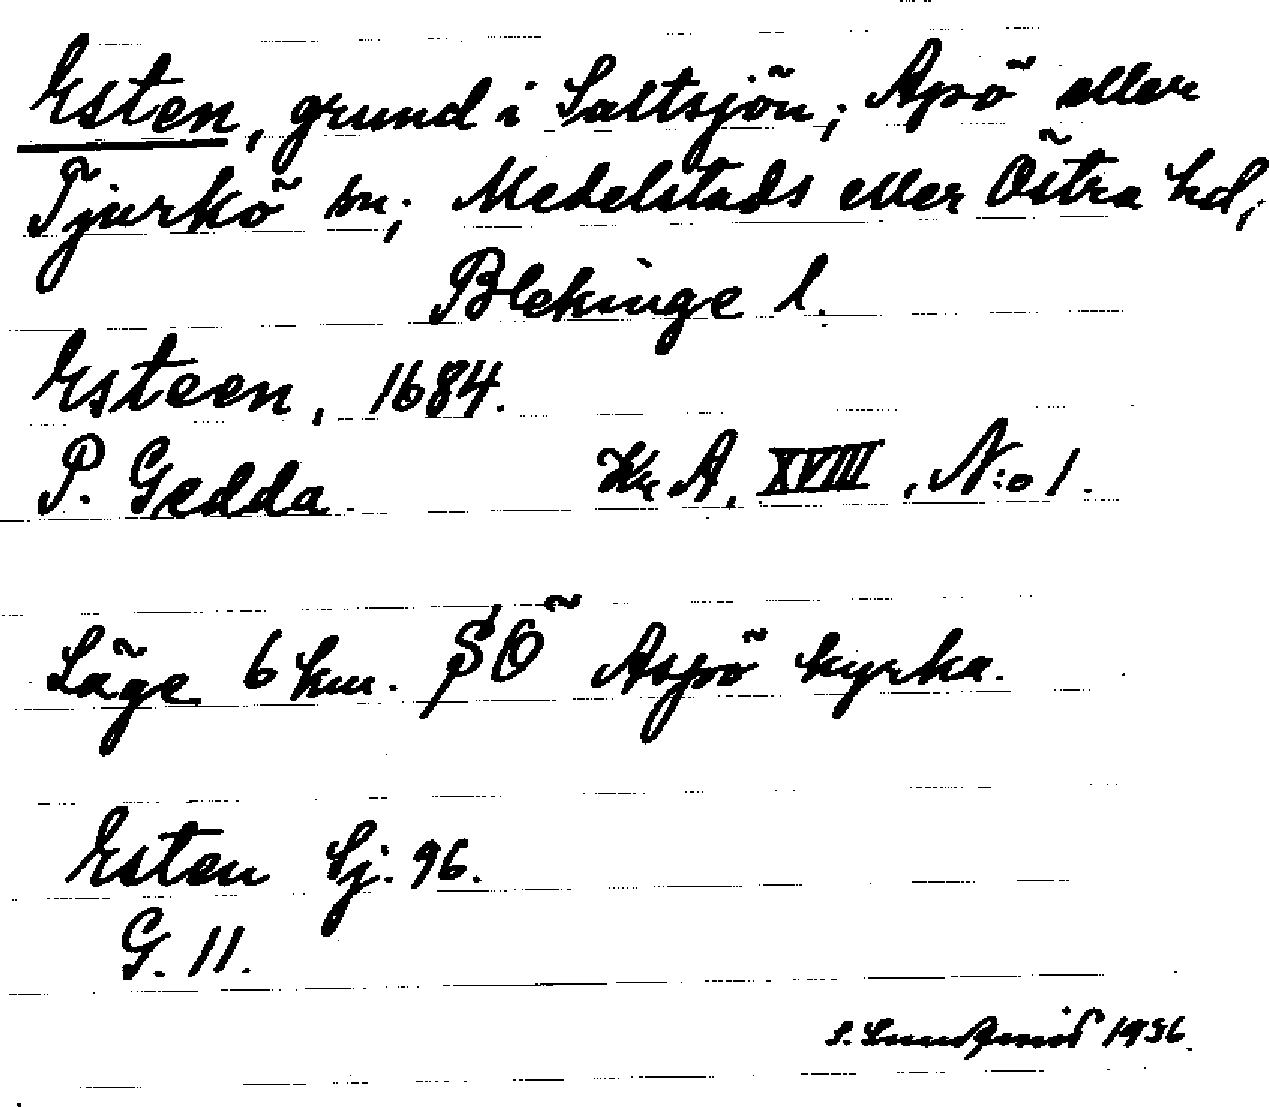 Esten, grund i Saltsjön; Apö eller
Tjurkö sn; Medelstads eller Östra hd,
Blekinge l.
Esteen, 1684.
P. Gedda Kr. A. XVIII, N:o 1.
Läge 6 km. SÖ Aspö kyrka.
Esten Sj. 96.
G. 11.
S. 1936.